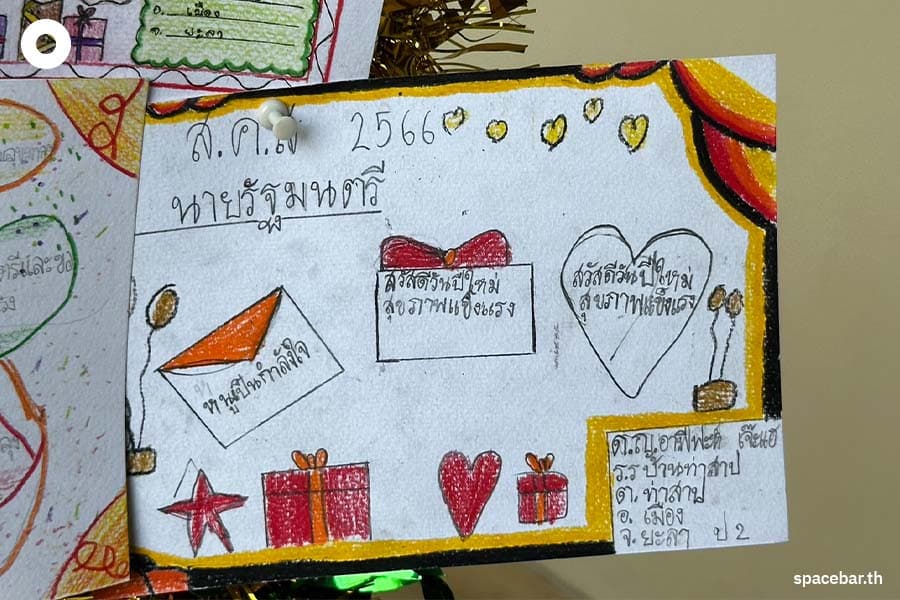 อ. เมือง
จ. ยะลา
ส.ค.ส 2566
นายรัฐมนตรี
สวัสดีวันปีใหม่
สุขภาพแข็งแรง
สวัสดีวันปีใหม่
สุขภาพแข็งแรง
หนูเป็นกำลังใจ
ด.ญ.
ร.ร บ้านท่าสาป
ต. ท่าสาป
อ. เมือง
จ. ยะลา ป 2
spacebar.th